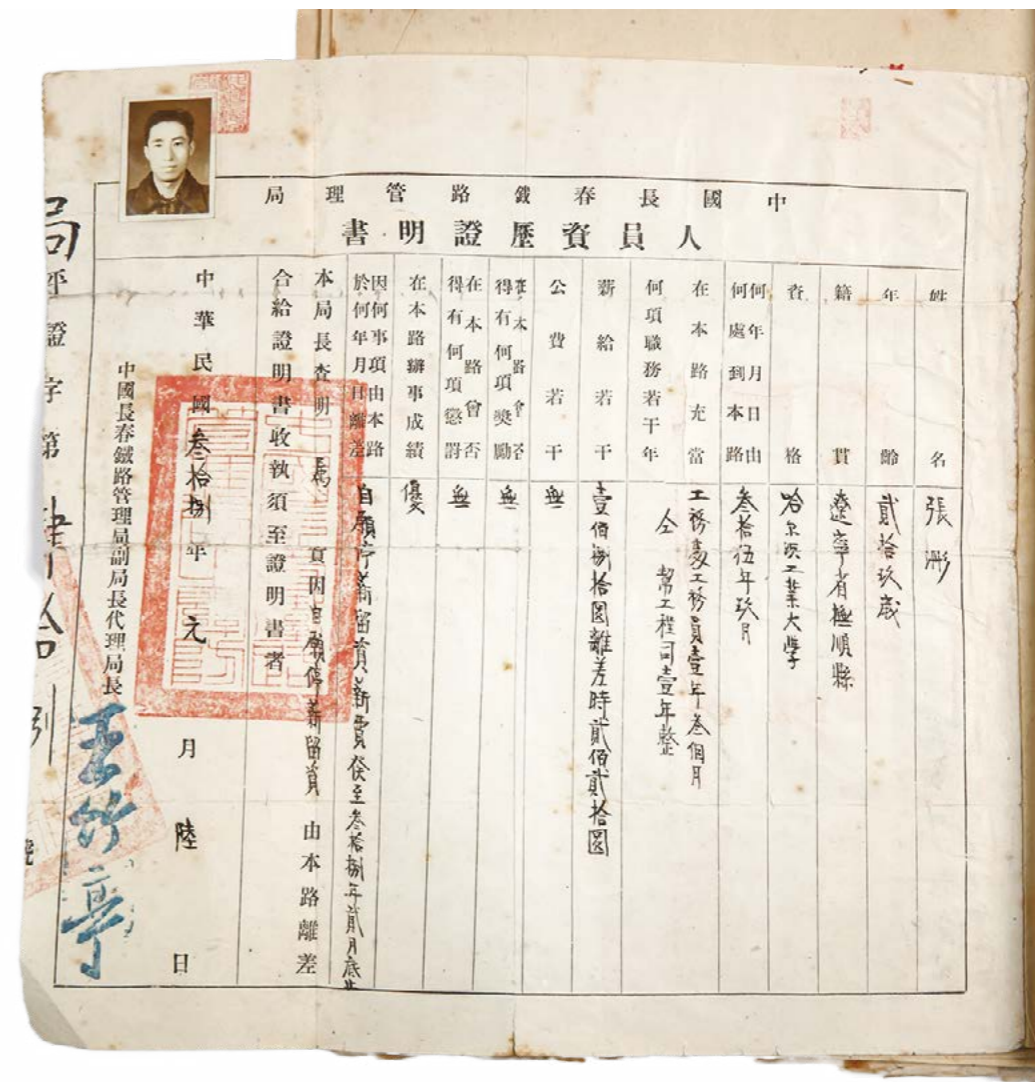 中國長春鐵路管理局
人員資歷證明書
姓名 張彤
年齡 貳拾玖歲
籍貫 遼寧省撫順縣
資格 哈尔浜工業大學
何年月日由何處到本路 叁拾伍年玖月
在本路充當何項職務若干年 工務處工務員壹年叁個月
仝 幫工程司壹年整
薪給若干 壹佰捌拾圓離差時貳佰貳拾圓
公費若干 無
在本路曾否得有何項獎勵 無
在本路曾否得有何項懲罰 無
在本路辦事成績 優
因何事項由本路於何年月日離差 自願停薪留資薪費發至叁拾捌年貳月底止
本局長查明 為 員因自願停薪留資 由本路離差
合給證明書收執須至證明書者
中華民國叁拾捌年元月陸日
中國長春鐵路管理局副局長代理局長 王竹亭
局 證字第 拾